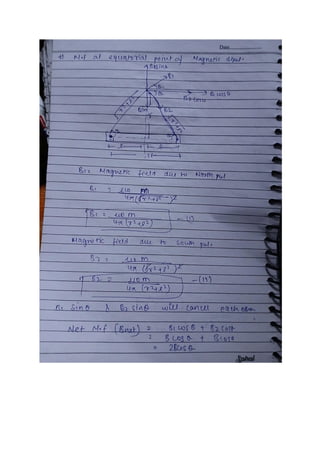 Date
M.f at equatorial point of Magnetic dipol.
B sinθ
B1
B cosθ
B2
B1 = Magnetic field due to North pol
B1 = μ0 m
4π (√r²+l²)²
B1 = μ0 m —(I)
4π (r²+l²)
Magnetic field due to South pol.
B2 = μ0 m
4π (√r²+l²)²
B2 = μ0 m —(II)
4π (r²+l²)
B1 sinθ & B2 sinθ will cancel each other
Net M.f (Bnet) = B1 cosθ + B2 cosθ
= B cosθ + B cosθ
= 2B cosθ